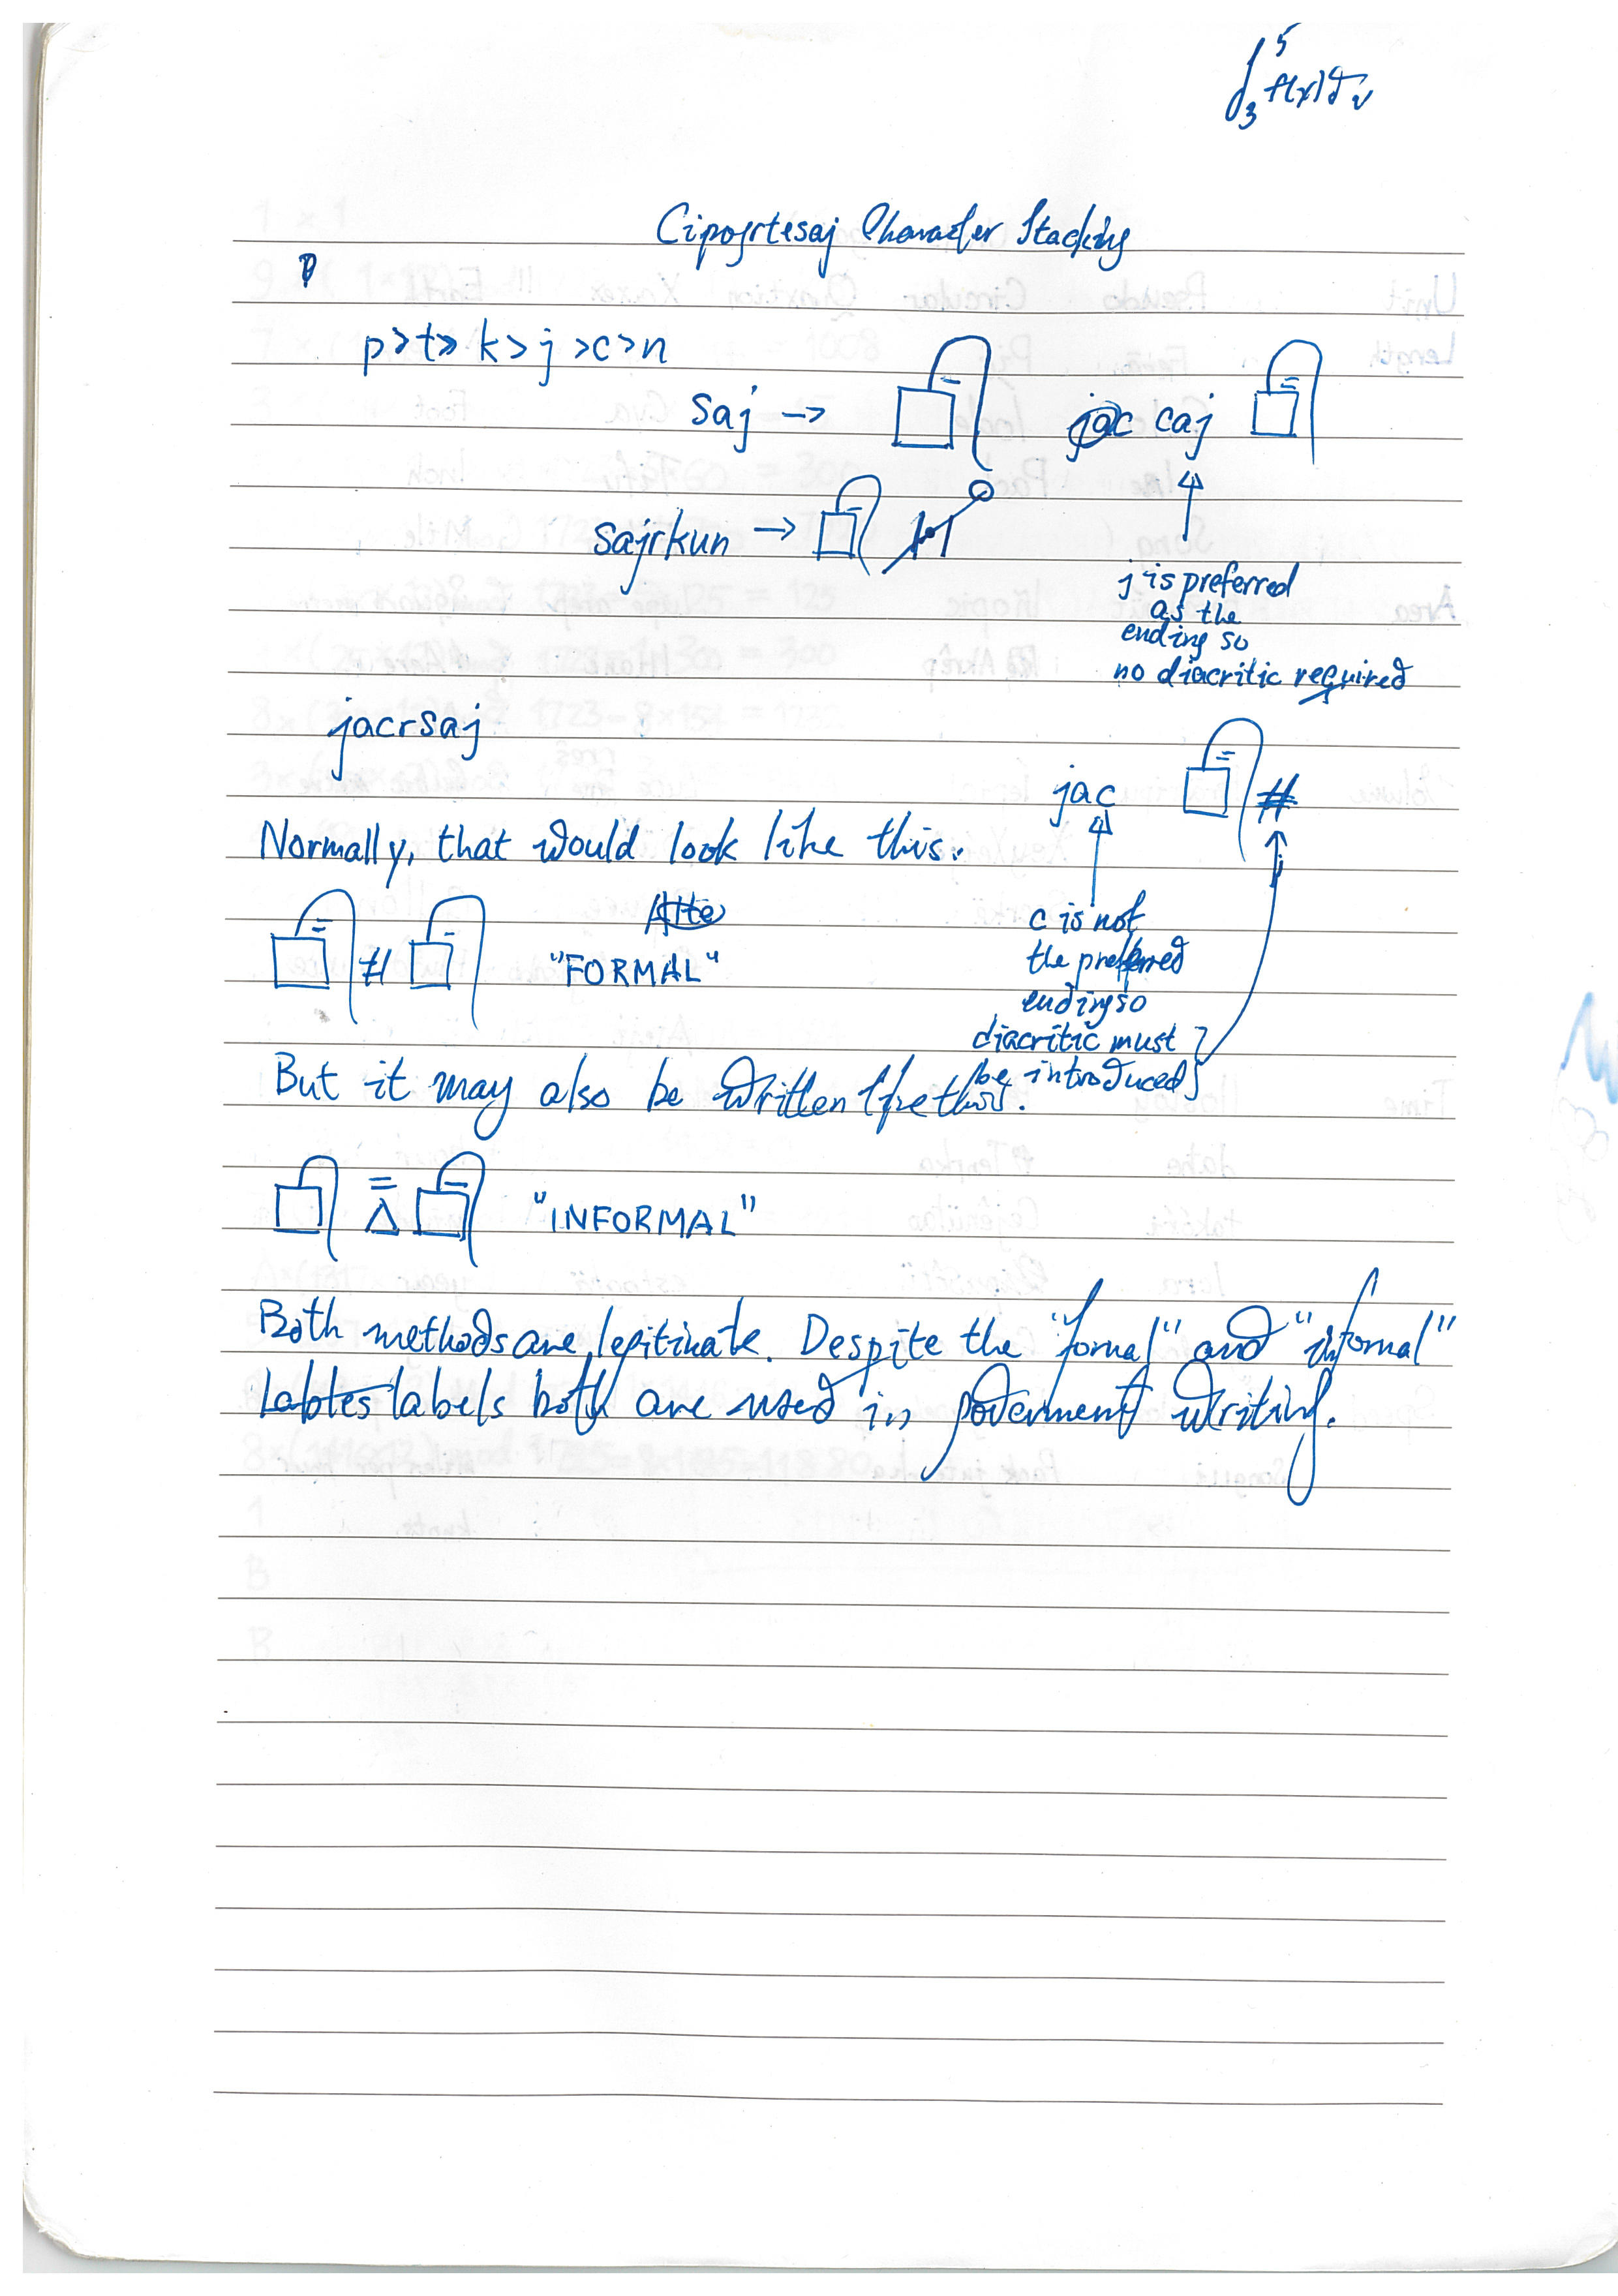 ∫₃⁵ f(x)
Character Stacking
p>t>k>j>c>n
saj → caj
sajrkun →
j is preferred
as the
ending so
no diacritic required
jacrsaj
jac #
Normally, that would look like this.
#
"FORMAL"
c is not
the preferred
ending so
diacritic must
be introduced
But it may also be written like this.
"INFORMAL"
Both methods are legitimate. Despite the "formal" and "informal"
labels both are used in goverment writing.